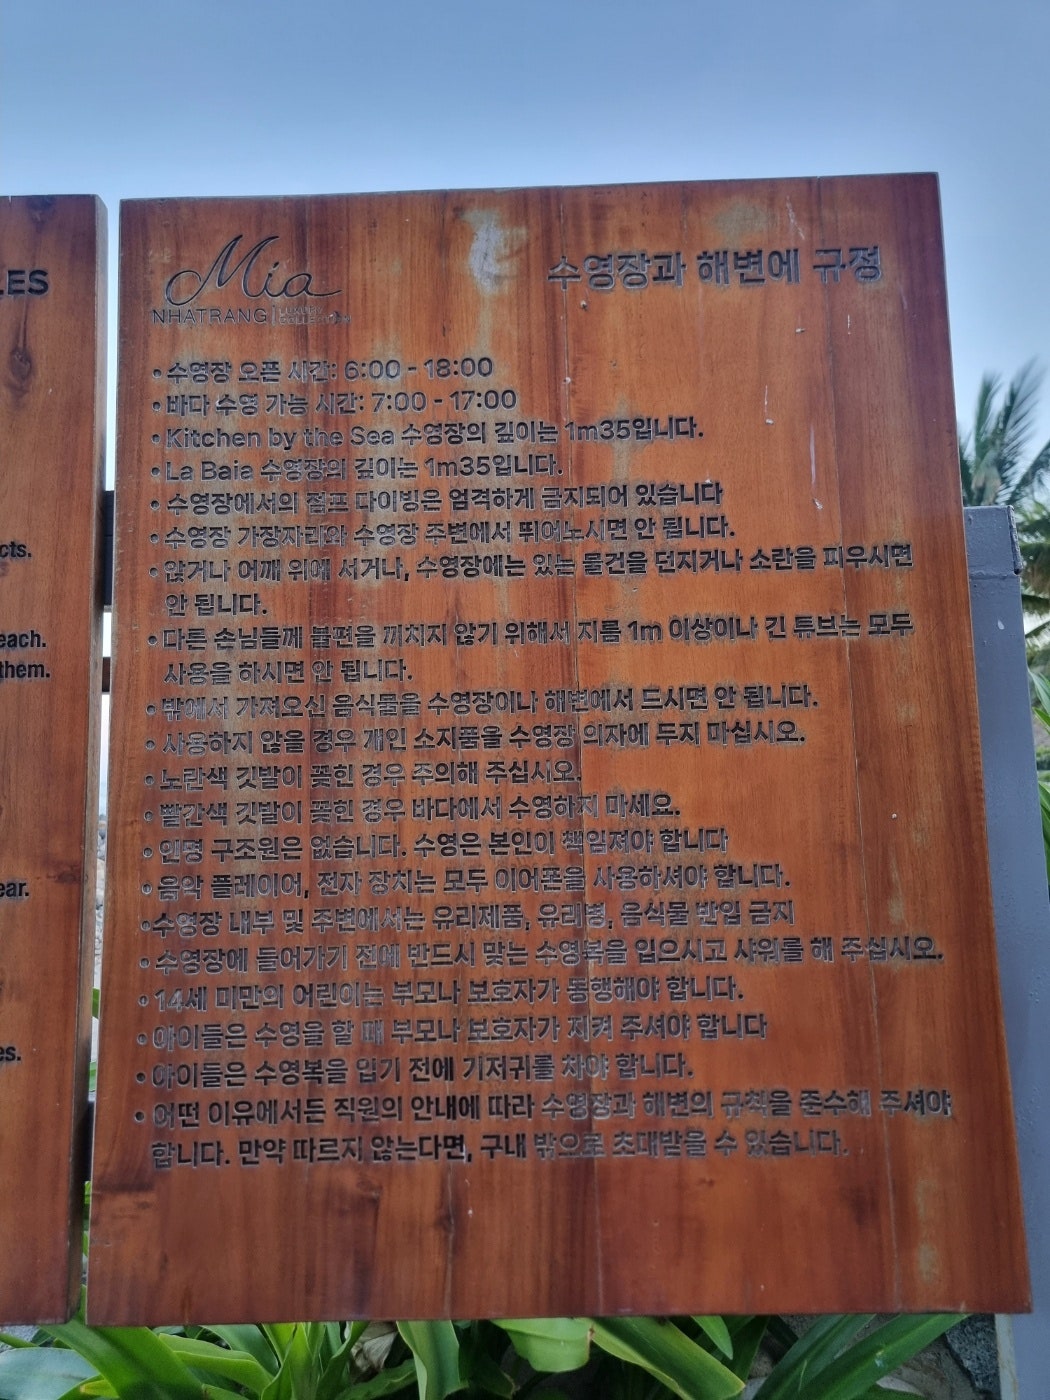 LES
cts.
each.
them.
ear.
es.
Mia
NHATRANG
수영장과 해변에 규정
• 수영장 오픈 시간: 6:00 - 18:00
• 바다 수영 가능 시간: 7:00 - 17:00
• Kitchen by the Sea 수영장의 깊이는 1m35입니다.
• La Baia 수영장의 깊이는 1m35입니다.
• 수영장에서의 점프 다이빙은 엄격하게 금지되어 있습니다
• 수영장 가장자리와 수영장 주변에서 뛰어노시면 안 됩니다.
• 앉거나 어깨 위에 서거나, 수영장에는 있는 물건을 던지거나 소란을 피우시면
안 됩니다.
• 다른 손님들께 불편을 끼치지 않기 위해서 지름 1m 이상이나 긴 튜브는 모두
사용을 하시면 안 됩니다.
• 밖에서 가져오신 음식물을 수영장이나 해변에서 드시면 안 됩니다.
• 사용하지 않을 경우 개인 소지품을 수영장 의자에 두지 마십시오.
• 노란색 깃발이 꽂힌 경우 주의해 주십시오.
• 빨간색 깃발이 꽂힌 경우 바다에서 수영하지 마세요.
• 인명 구조원은 없습니다. 수영은 본인이 책임져야 합니다
• 음악 플레이어, 전자 장치는 모두 이어폰을 사용하셔야 합니다.
• 수영장 내부 및 주변에서는 유리제품, 유리병, 음식물 반입 금지
• 수영장에 들어가기 전에 반드시 맞는 수영복을 입으시고 샤워를 해 주십시오.
• 14세 미만의 어린이는 부모나 보호자가 동행해야 합니다.
• 아이들은 수영을 할 때 부모나 보호자가 지켜 주셔야 합니다
• 아이들은 수영복을 입기 전에 기저귀를 차야 합니다.
• 어떤 이유에서든 직원의 안내에 따라 수영장과 해변의 규칙을 준수해 주셔야
합니다. 만약 따르지 않는다면, 구내 밖으로 초대받을 수 있습니다.